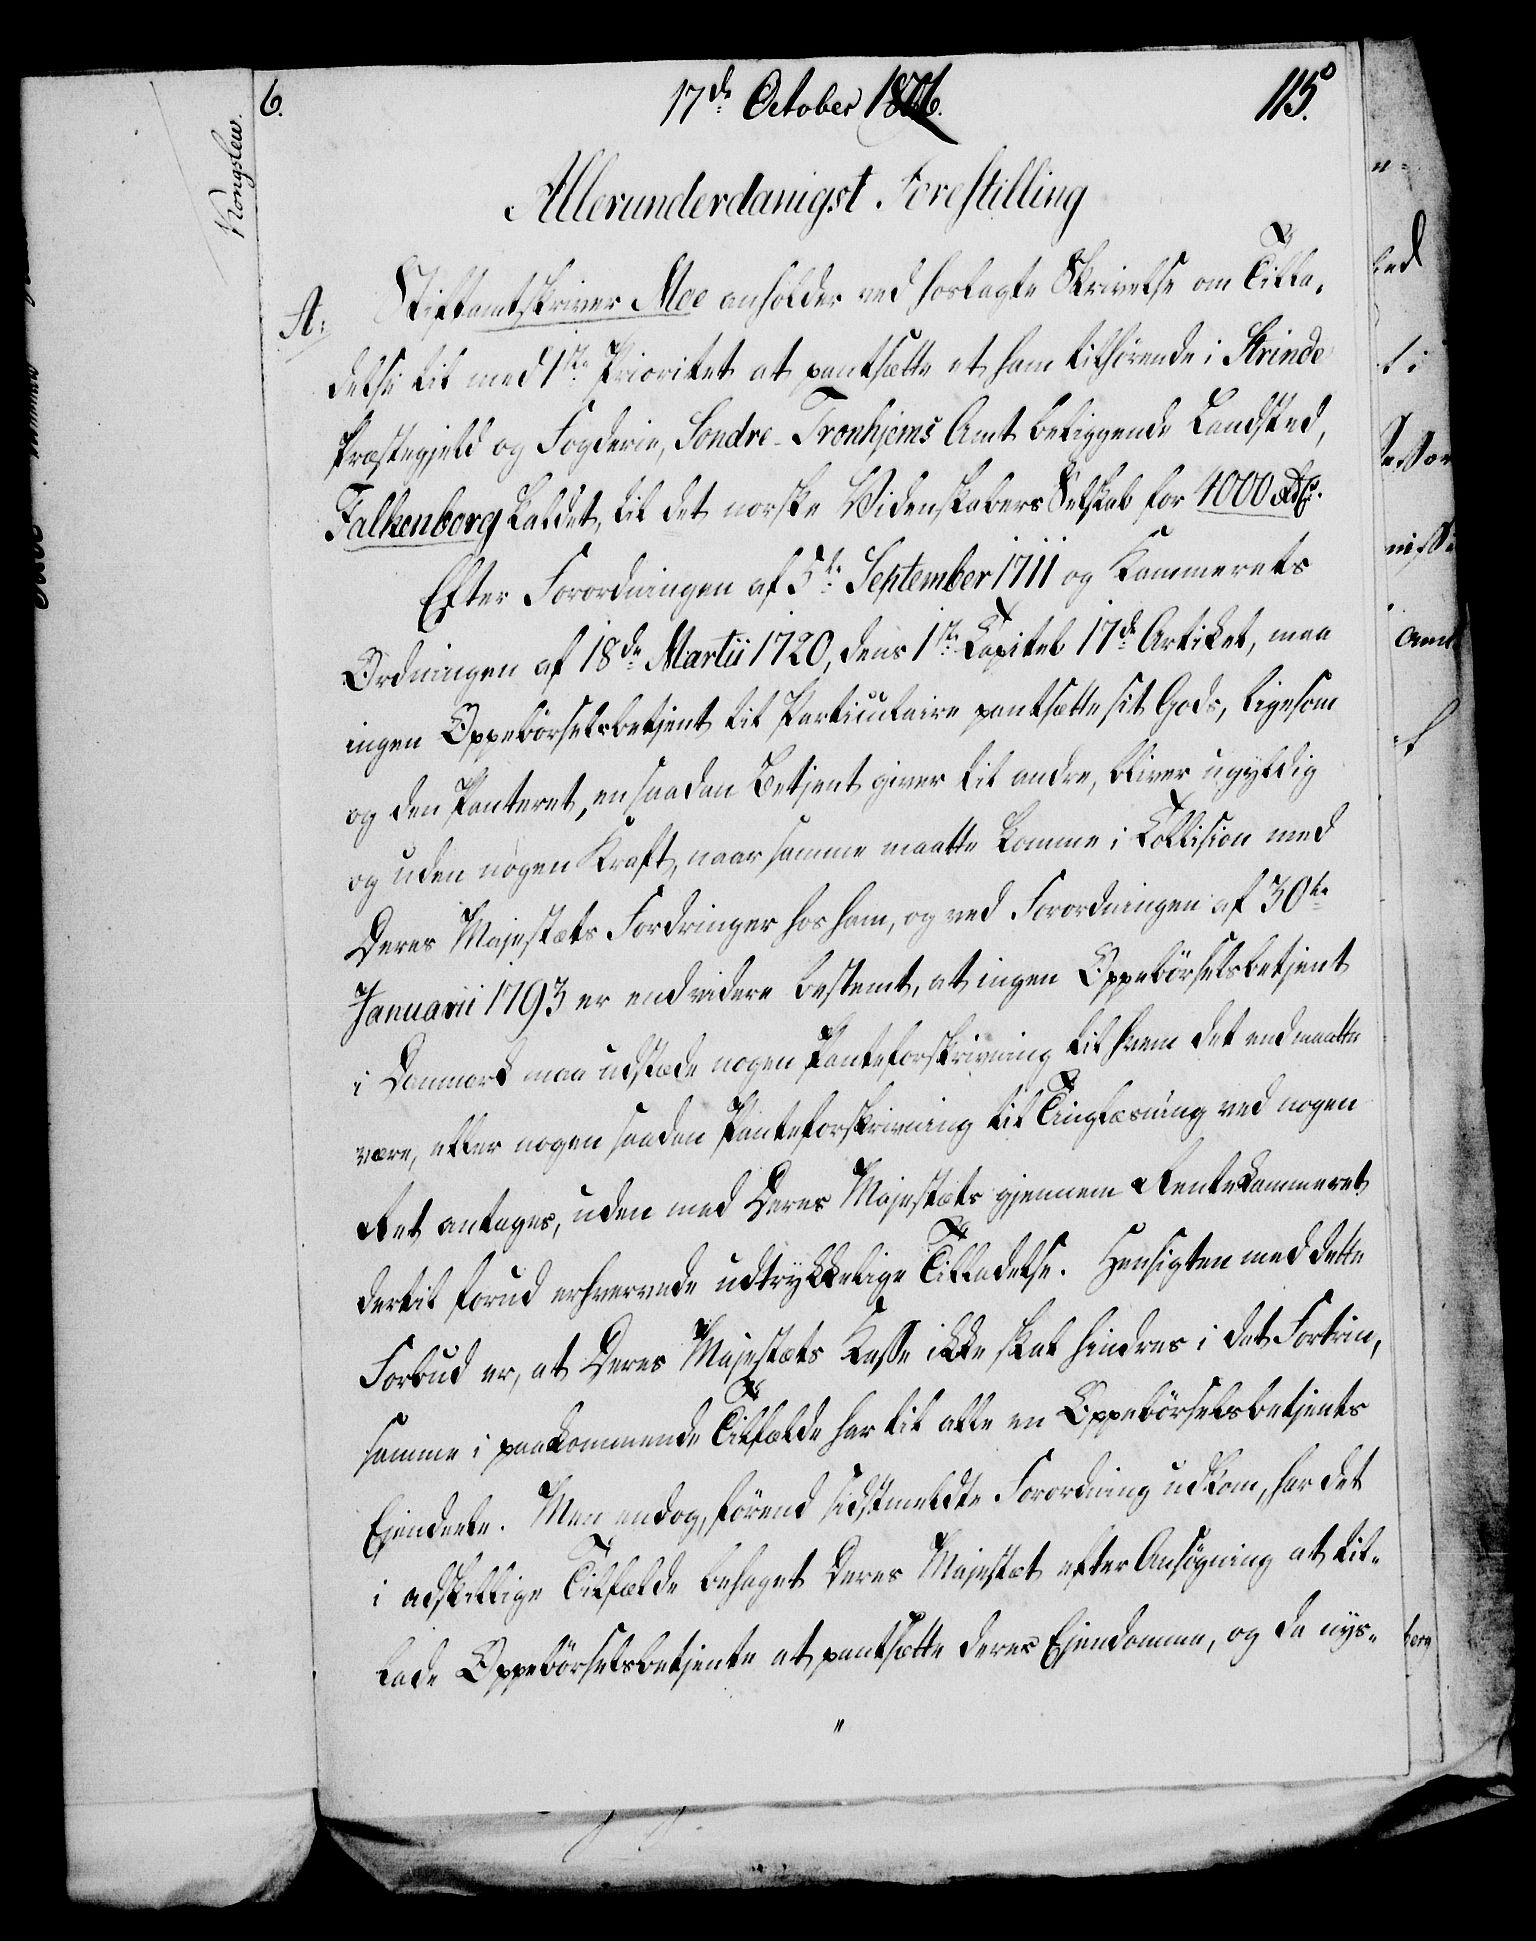 6.
17de October 1806.
115.
Kongslew.
Allerunderdanigst Forestilling
A:
Stiftamtskriver Moe anholder ved hoslagte Skrivelse om Tilla,
delse til med 1ste Prioritet at pantsætte et ham tilhörende i Strinde
Præstegjeld og Fogderie, Sondre-Tronhjems Amt beliggende Landsted,
Falkenborg kaldet, til det norske Videnskabers Selskab for 4000 Rdlr.
Efter Forordningen af 5te September 1711 og Kammerets
Ordningen af 18de Martii 1720, dens 1ste Capitel 17de Artikel, maa
ingen Oppebörselsbetjent til Particulaire pantsætte sit Gods, ligesom
og den Panteret, en saadan Betjent giver til andre, bliver ugyldig
og uden nogen Kraft, naar samme maatte komme i Collision med
Deres Majestæts Fordringer hos ham, og ved Forordningen af 30te
Januarii 1793 er endvidere bestemt, at ingen Oppebörselsbetjent
i Danmark maa udstæde nogen Panteforskrivning til hvem det end maatte
være, eller nogen saadan Panteforskrivning til Tinglæsning ved nogen
Ret antages, uden med Deres Majestæts gjennem Rentekammeret
dertil forud erhvervede udtrykkelige Tilladelse. Hensigten med dette
Forbud er, at Deres Majestæts Kasse ikke skal hindres i det Fortrin,
samme i paakommende Tilfælde har til alle en Oppebörselsbetjents
Ejendele. Men endog, förend sidstmeldte Forordning udkom, har det
i adskillige Tilfælde behaget Deres Majestæt efter Ansögning at til-
lade Oppebörselsbetjente at pantsætte deres Ejendomme, og da nys-
"